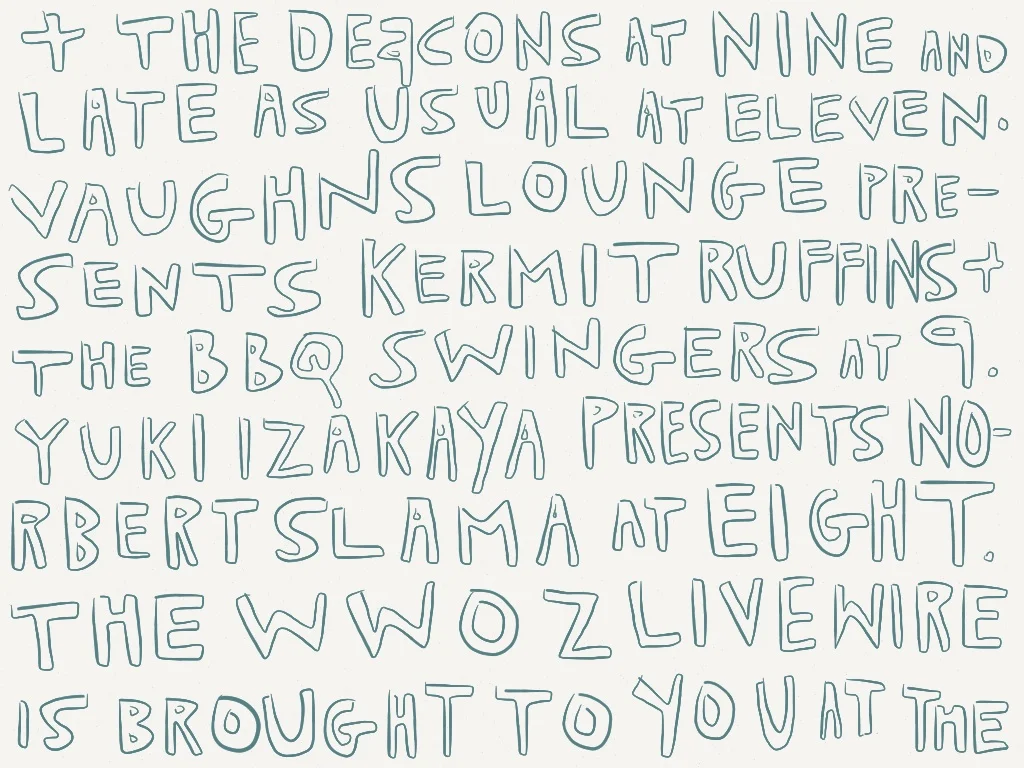 + THE DEACONS AT NINE AND
LATE AS USUAL AT ELEVEN.
VAUGHNS LOUNGE PRE-
SENTS KERMIT RUFFINS +
THE BBQ SWINGERS AT 9.
YUKI IZAKAYA PRESENTS NO-
RBERT SLAMA AT EIGHT.
THE WWOZ LIVEWIRE
IS BROUGHT TO YOU AT THE